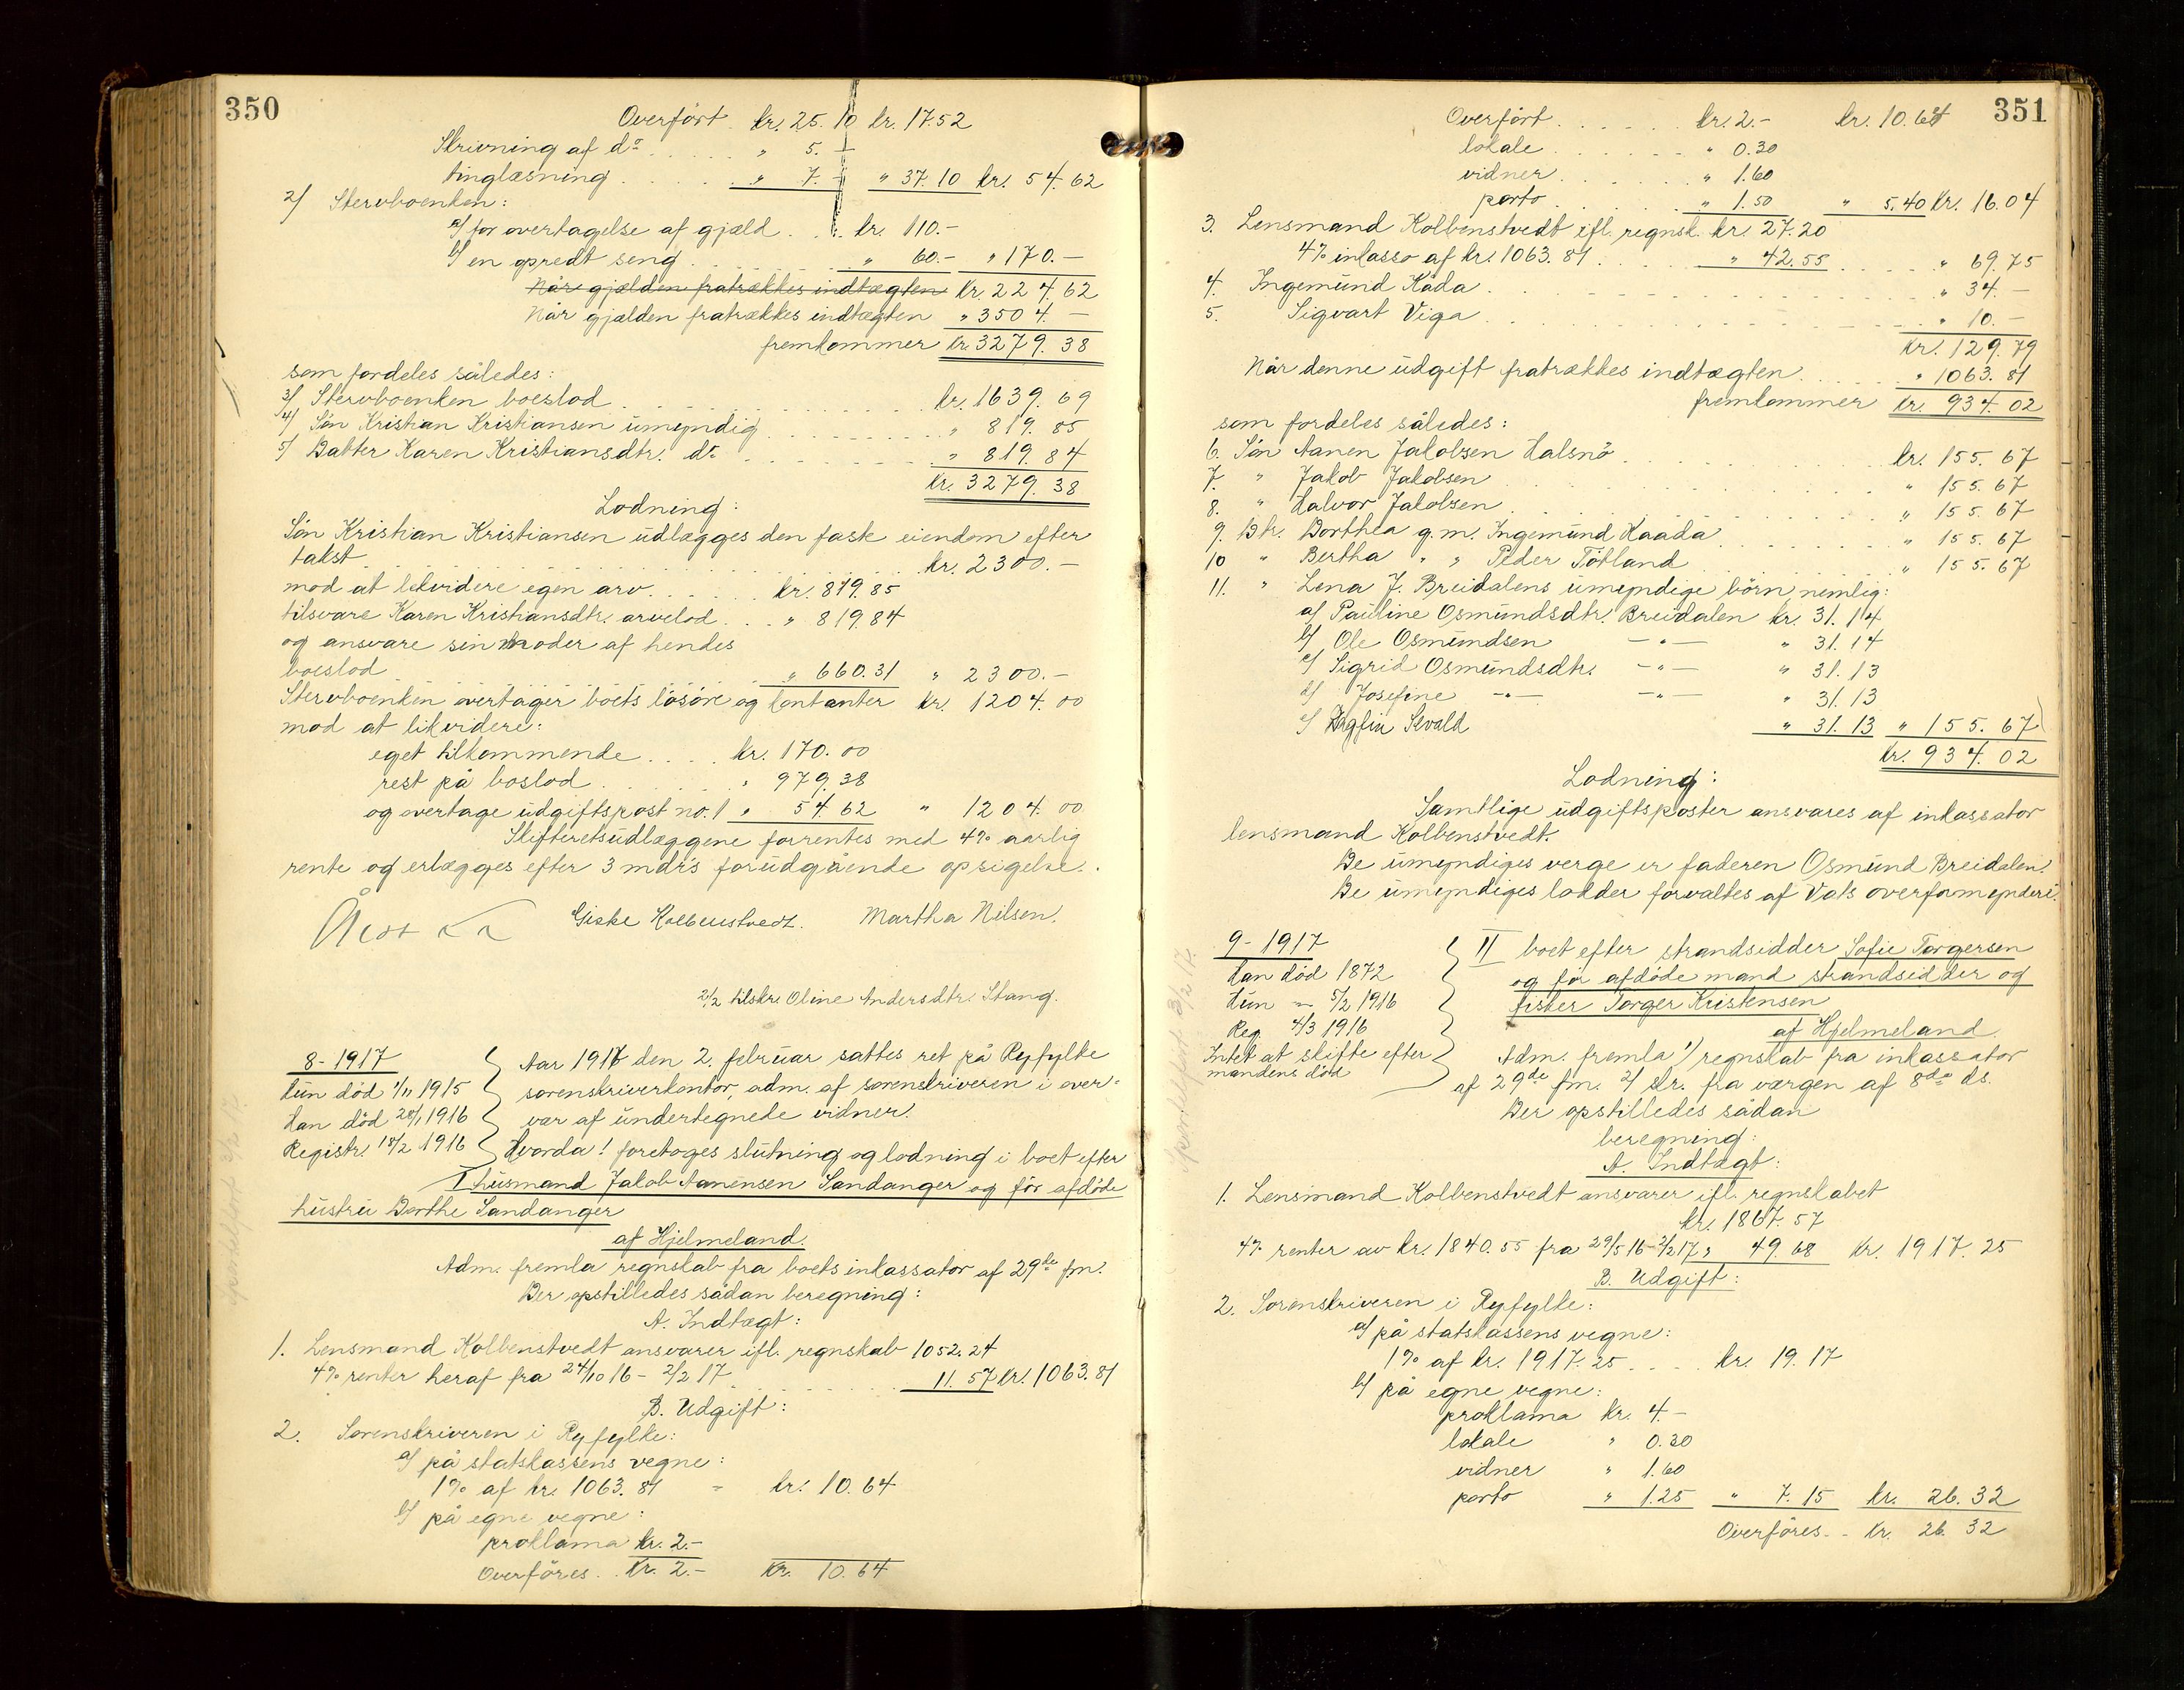 350
Overført kr. 25.10 kr. 17.52
Skrivning af do. " 5.-
tinglæsning " 7.- " 37.10 kr. 54.62
2/ Stervboenken:
a/ for overtagelse af gjæld kr. 110.-
b/ en opredt seng " 60.- " 170.-
Når gjælden fratrækkes indtægten Kr. 224.62
Når gjælden fratrækkes indtægten " 3504.-
fremkommer Kr. 3279.38
som fordeles således:
3/ Stervboenken boeslod kr. 1639.69
4/ Søn Kristian Kristiansen umyndig " 819.85
5/ Datter Karen Kristiansdtr. do. " 819.84
Kr. 3279.38
Lodning:
Søn Kristian Kristiansen udlægges den faste eiendom efter
takst kr. 2300.-
mod at likvidere egen arv kr. 819.85
tilsvare Karen Kristiansdtr. arvelod " 819.84
og ansvare sin moder af hendes
boeslod " 660.31 " 2300.-
Stervboenken overtager boets løsøre og kontanter kr. 1204.00
mod at likvidere:
eget tilkommende kr. 170.00
rest på boslod " 979.38
og overtage udgiftspost no. 1 " 54.62 " 1204.00
Skifteretsudlæggene forrentes med 4% aarlig
rente og erlægges efter 3 mdr's forudgående opsigelse.
Giske Kolbenstvedt. Martha Nilsen.
2/2 tilskr. Oline Andersdtr. Stang.
8- 1917
Hun død 1/11 1915
Han død 28/1 1916
Registr. 18/2 1916
Aar 1917 den 2. februar sattes ret på Ryfylke
sorenskriverkontor, adm. af sorenskriveren i over-
vær af undertegnede vidner.
Hvorda! foretoges slutning og lodning i boet efter
I husmand Jakob Aanensen Sandanger og før afdøde
hustru Dorthe Sandanger
af Hjelmeland.
Adm. fremla regnskab fra boets inkassator af 29de fm.
Der opstilledes sådan beregning:
A. Indtægt:
1. Lensmand Kolbenstvedt ansvarer ifl. regnskab 1052.24
4% renter heraf fra 24/10 16 - 2/2 17 11.57 Kr. 1063.81
B. Udgift:
2. Sorenskriveren i Ryfylke:
a/ på statskassens vegne:
1% af kr. 1063.81 - kr. 10.64
b/ på egne vegne:
proklama kr. 2.-
Overføres Kr. 2.- Kr. 10.64
351
Overført kr. 2.- kr. 10.64
lokale " 0.30
vidner " 1.60
porto " 1.50 " 5.40 Kr. 16.04
3. Lensmand Kolbenstvedt ifl. regnsk. kr. 27.20
4% inkasso af kr. 1063.81 " 42.55 " 69.75
4. Ingemund Kåda " 34.-
5. Sigvart Viga " 10.-
Kr. 129.79
Når denne udgift fratrækkes indtægten " 1063.81
fremkommer Kr. 934.02
som fordeles således:
6. Søn Aanen Jakobsen Halsnö kr. 155.67
7. " Jakob Jakobsen " 155.67
8. " Halvor Jakobsen " 155.67
9. Dtr. Dorthea g.m. Ingemund Kaada " 155.67
10 " Bertha " " Peder Tötland " 155.67
11. " Lena J. Breidalens umyndige børn, nemlig:
a/ Pauline Osmundsdtr. Breidalen kr. 31.14
b/ Ole Osmundsen -"- " 31.14
c/ Sigrid Osmundsdtr. -"- " 31.13
d/ Josefine -"- -"- " 31.13
e/ Dagfin Sevald " 31.13 " 155.67
Kr. 934.02
Lodning:
Samtlige udgiftsposter ansvares af inkassator
lensmand Kolbenstvedt.
De umyndiges verge er faderen Osmund Breidalen.
De umyndiges lodder forvaltes af Vats overformynderi.
9- 1917
Han död 1872
Hun - 5/2 1916
Reg 4/3 1916
Intet at skifte efter
mandens död
II boet efter strandsidder Sofie Torgersen
og før afdøde mand strandsidder og
fisker Torger Kristensen
af Hjelmeland
Adm. fremla 1/ regnskab fra inkassator
af 29de fm. 2/ skr. fraværgen af 8de ds.
Der opstilledes sådan
beregning:
A. Indtægt:
1. Lensmand Kolbenstvedt ansvarer ifl. regnskabet
kr. 1867.57
4% renter av kr. 1840.55 fra 29/5 16 - 2/2 17 " 49.68 kr. 1917.25
B. Udgift:
2. Sorenskriveren i Ryfylke:
a/ på statskassens vegne:
1% af kr. 1917.25 kr. 19.17
b/ på egne vegne:
proklama kr. 4.-
lokale " 0.30
vidner " 1.60
porto " 1.25 " 7.15 kr. 26.32
Overføres kr. 26.32